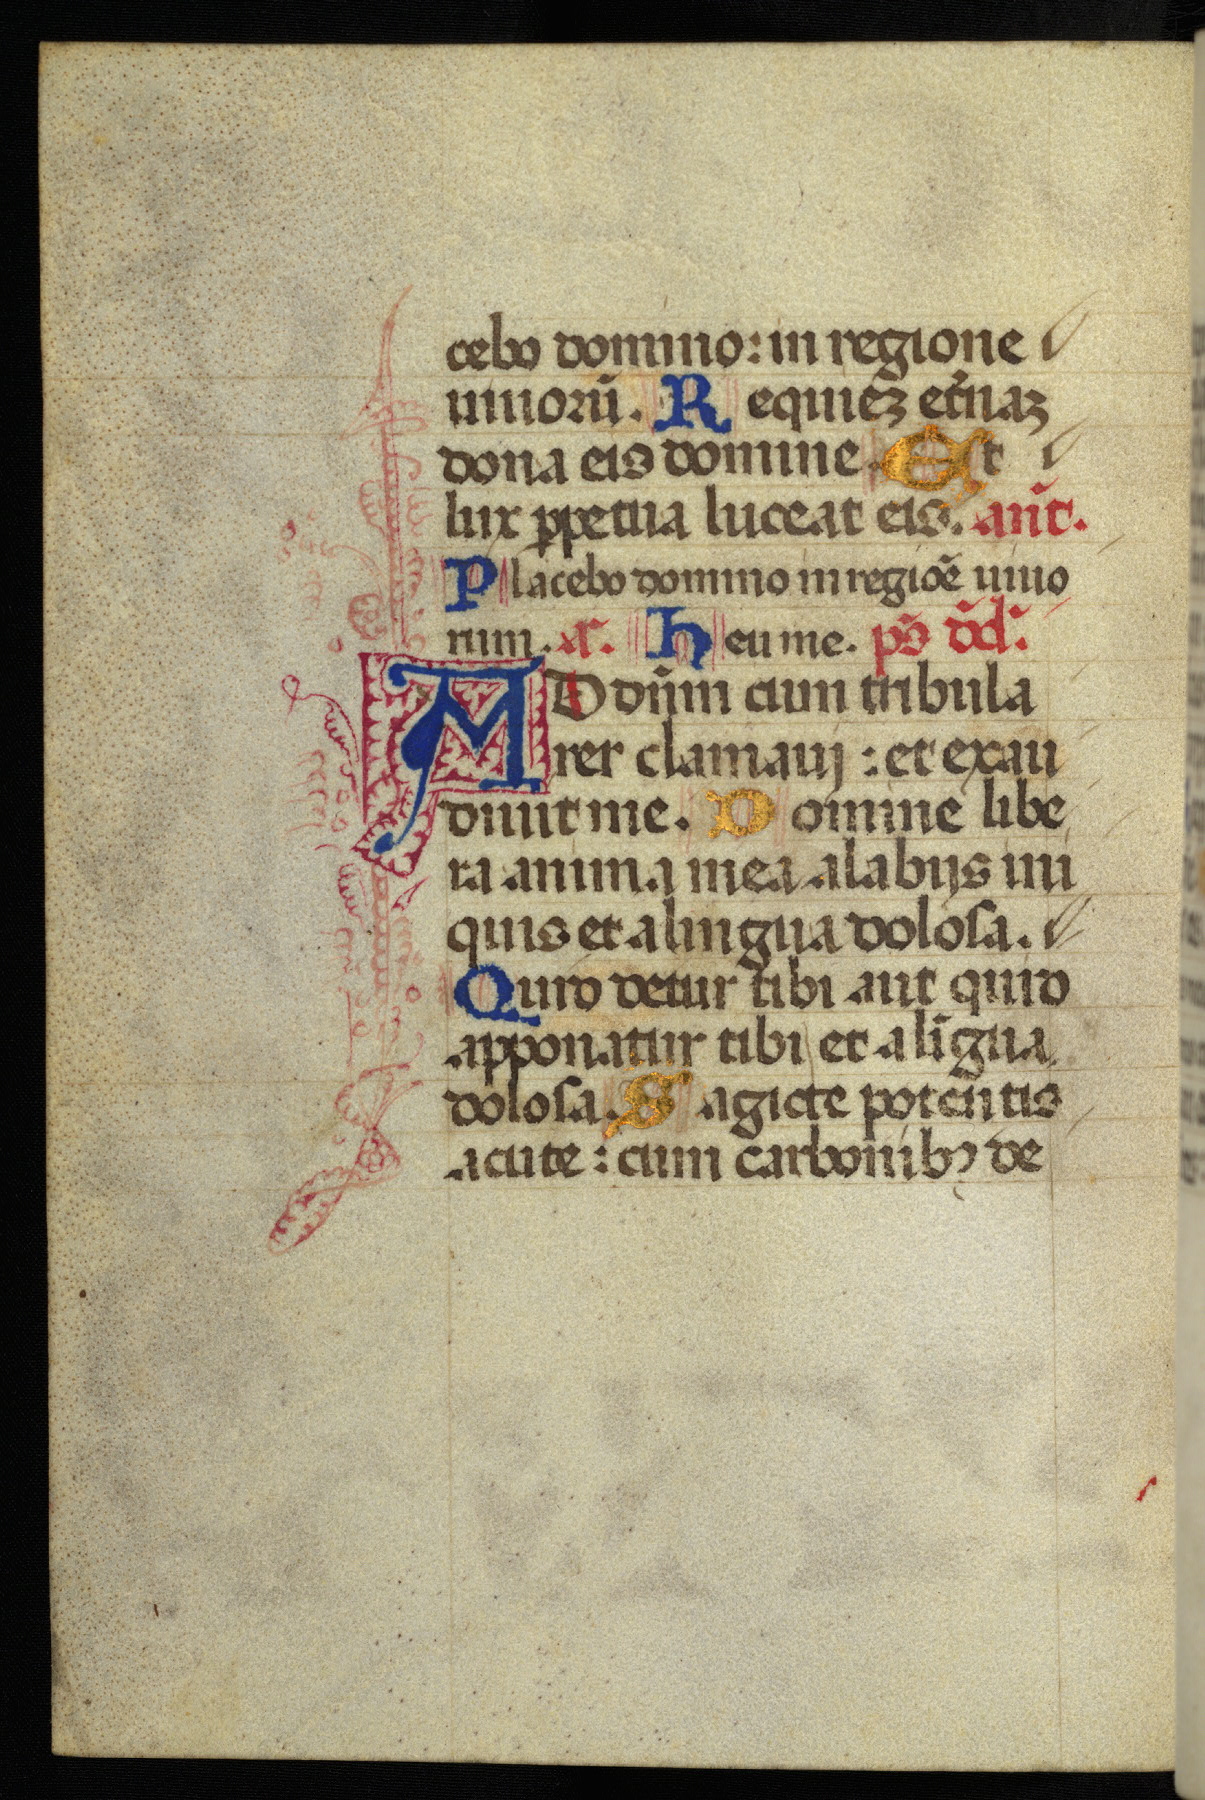 cebo domino: in regione
uiuorū. Requiēȝ et̄naȝ
dona eis domine. Et
lux ꝑpetua luceat eis. ant̄.
Placebo domino in regiōe uiuo
rum. a͂. Heu me. pš dd̄.
AD dn̄m cum tribula
rer clamaui : et exau
diuit me. Domine libe
ra anima mea a labijs ini
quis et a lingua dolosa.
Quid detur tibi aut quid
apponatur tibi et a līgua
dolosa. Sagicte potentis
acute : cum carbonibꝰ de